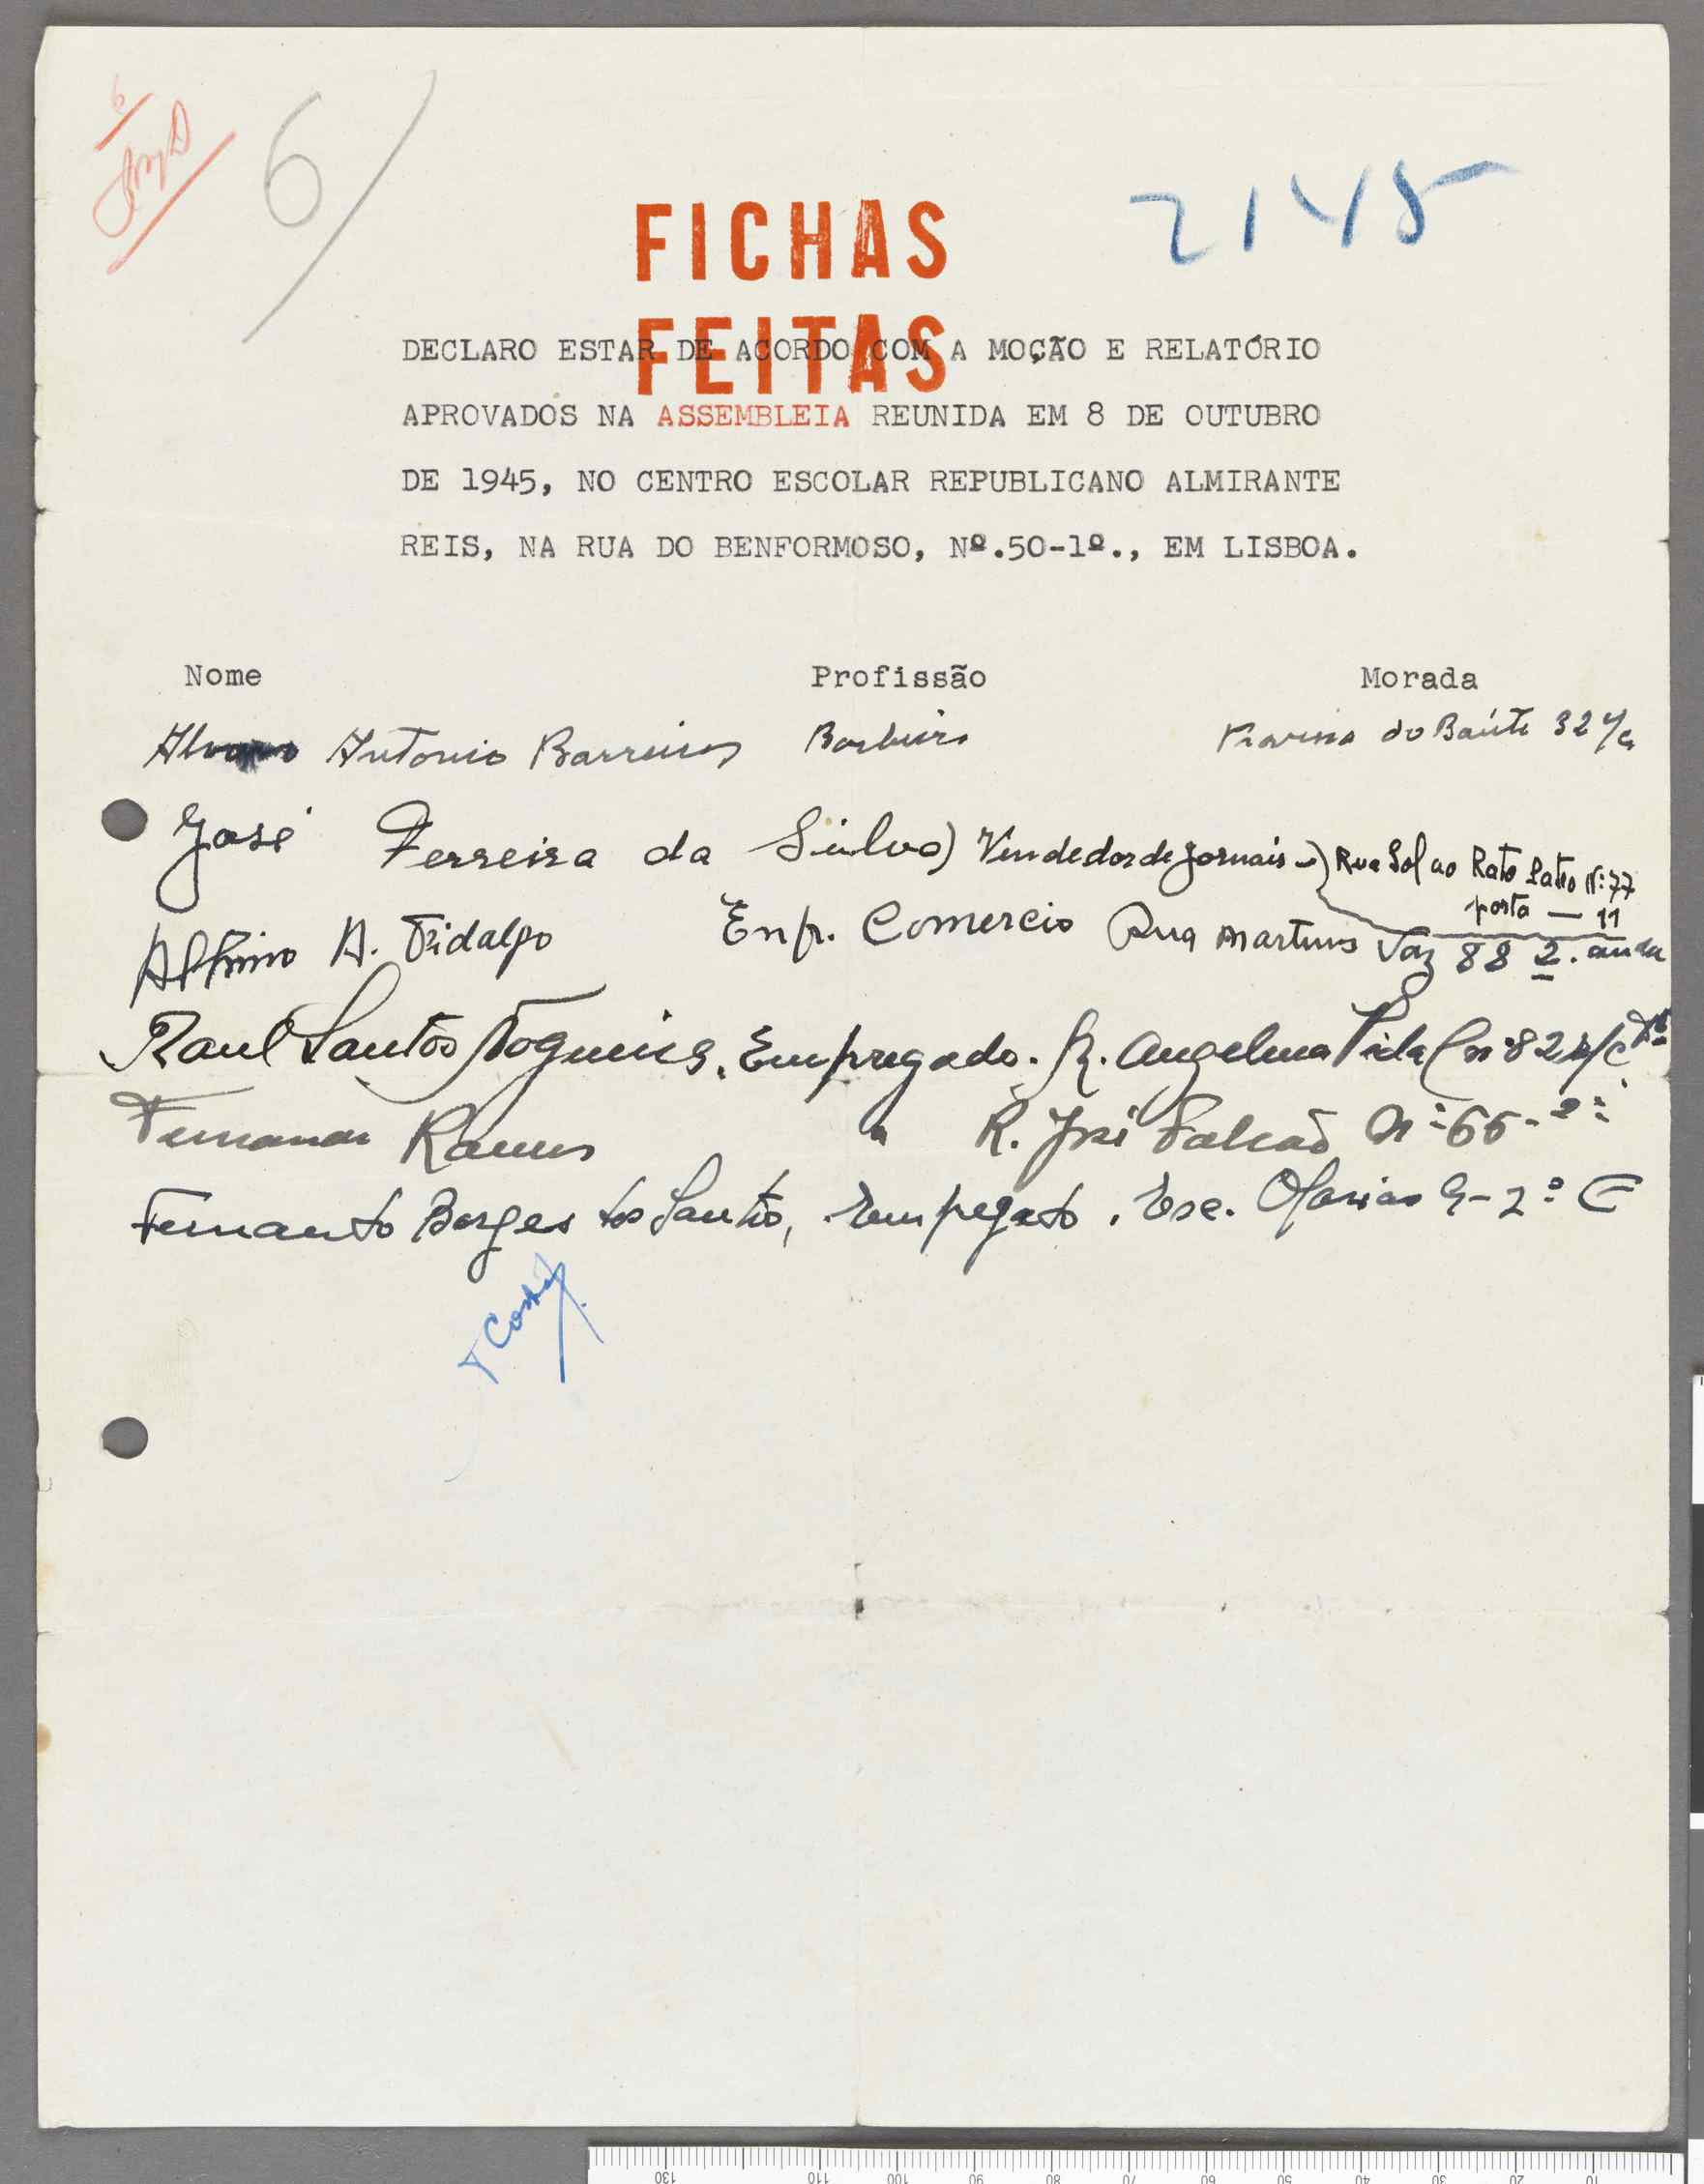 6
6
2145
FICHAS
FEITAS
DECLARO ESTAR DE ACORDO COM A MOÇÃO E RELATÓRIO
APROVADOS NA ASSEMBLEIA REUNIDA EM 8 DE OUTUBRO
DE 1945, NO CENTRO ESCOLAR REPUBLICANO ALMIRANTE
REIS, NA RUA DO BENFORMOSO, Nº.50-1º., EM LISBOA.
Nome Profissão Morada
Alvaro Antonio Barreiros Barbeiro do 32
José Ferreira da Silva) Vendedor de jornais Rua Sol ao Rato Patio Nº 77
porta — 11
Albino A. Fidalgo Enp. Comercio Rua Martins Vaz 88 2. andar
Raul Santos Nogueira, Empregado. R. Angelina Vidal nº 82 r/c Dto
Fernando Ramos " R. José Falcão Nº 66-2º
Fernando Borges dos Santos, Empegado. Esc. 9-2º E